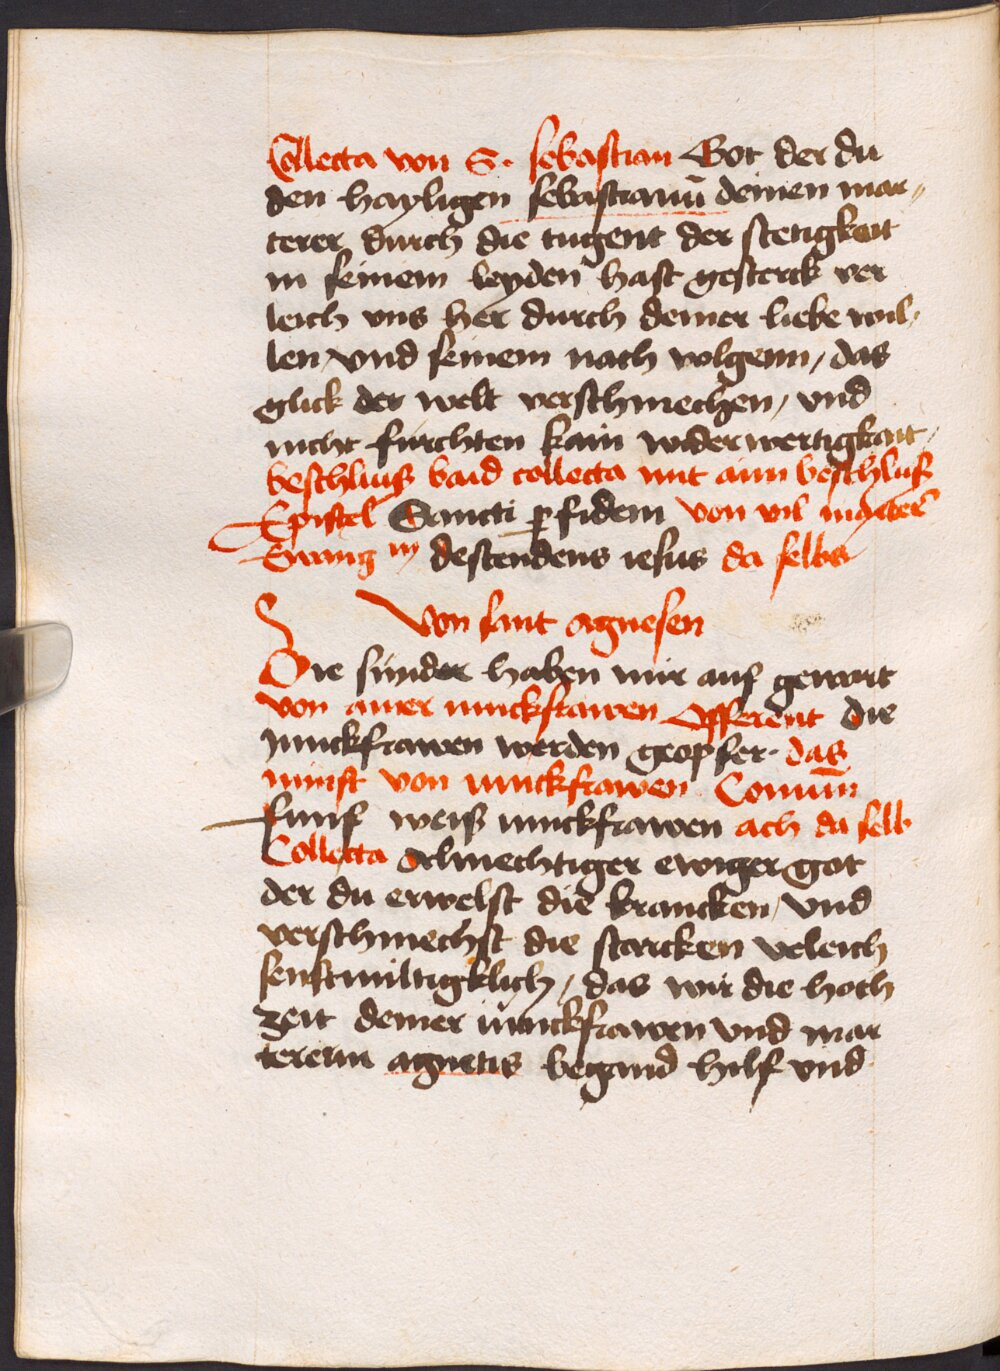 Collecta von S. sebastian Got der du
den hayligen sebastianū deinen mar„
terer durch die tugent der stetigkait
in seinem leyden hast gesterck ver
leich vns her durch deiner liebe wil„
len vnd seinem nach volgenn / das
glick der welt verschmechen / vnd
nicht fürchten kain widerwertigkait /
beschluiß baid collecta mit aim beschluß
Epistel Sancti ꝑ fidem von vil
Ewang iij descendens iesus da selbs
Von sant agnesen
Die sünder haben mir auf gewart
von ainer iunckfrawen Offerent die
iunckfrawen werden geopfer. das
minst von iunckfrawen. Comuīn
funf weiß iunckfrawen ach da selb
Collecta Almechtiger ewiger got
der du erwelst die krancken / vnd
verschmechst die starcken veleich
senftmiltigklich / das wir die hoch
zeit deiner iunckfrawen vnd mar
tererin agnetis begand hilf vnd